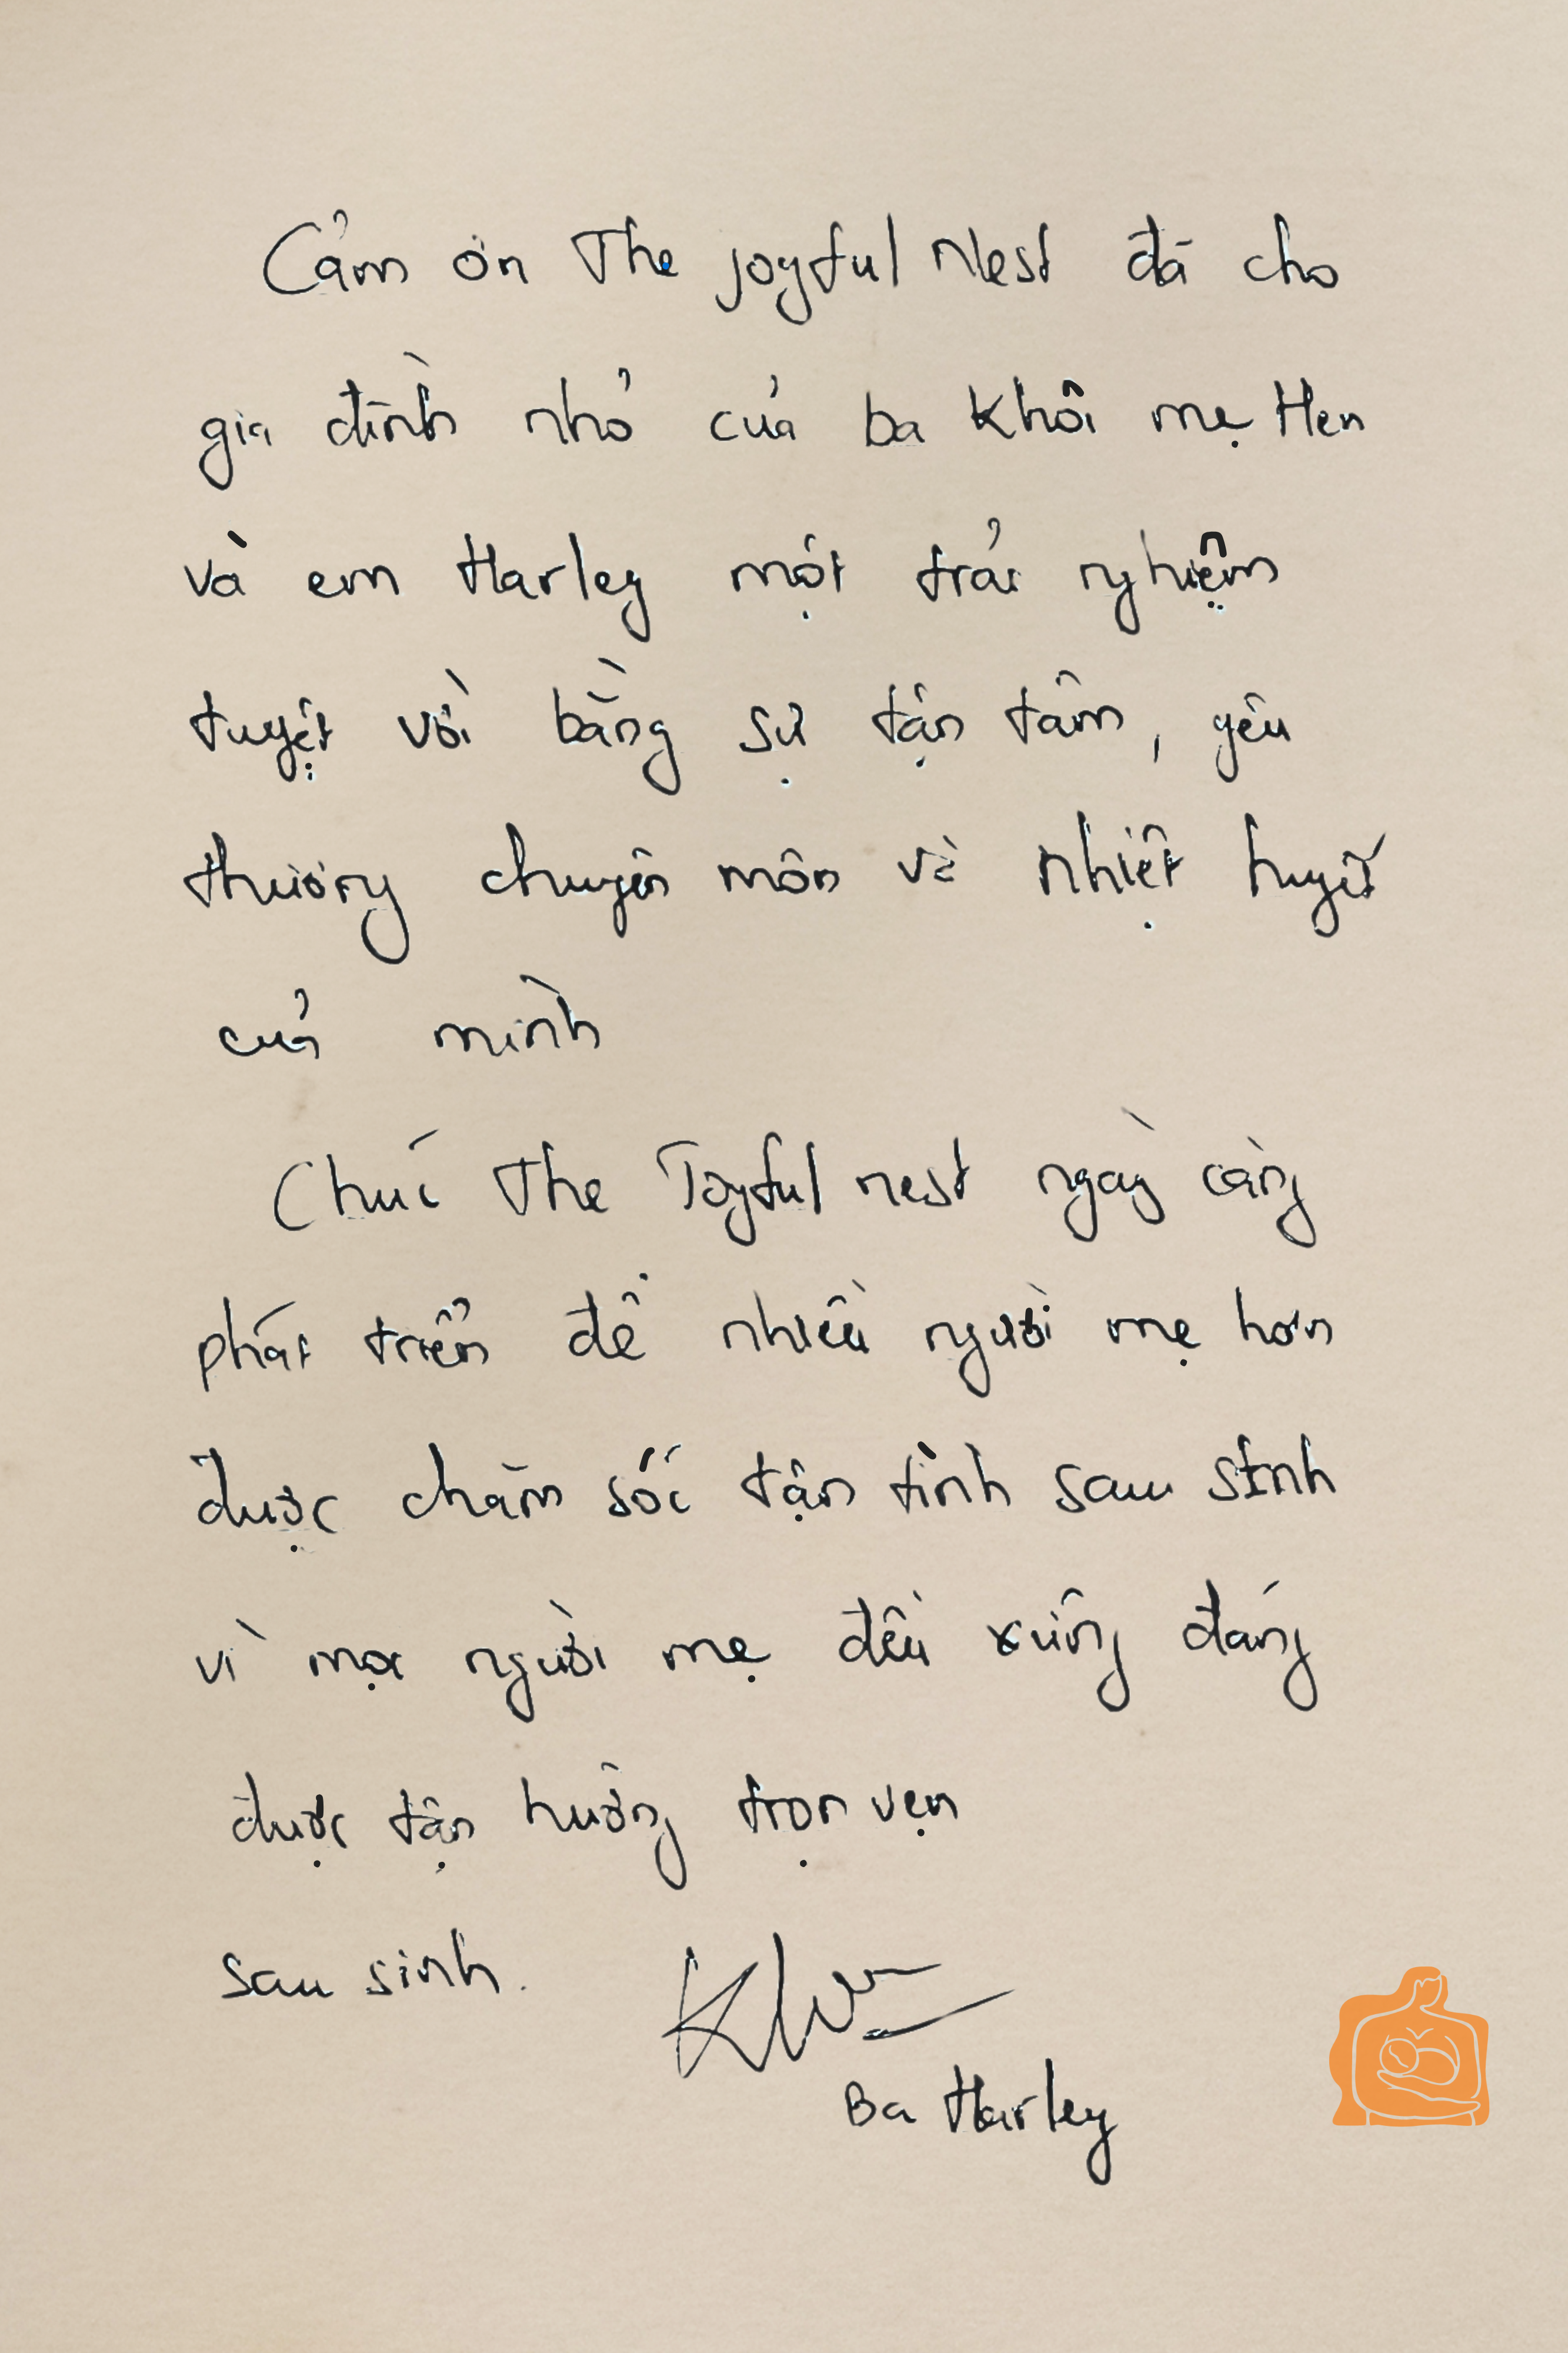 Cảm ơn The Joyful Nest đã cho
gia đình nhỏ của ba Khôi mẹ Hen
và em Harley một trải nghiệm
tuyệt vời bằng sự tận tâm, yêu
thương chuyên môn và nhiệt huyết
của mình
Chúc The Joyful nest ngày càng
phát triển để nhiều người mẹ hơn
được chăm sóc tận tình sau sinh
vì mọi người mẹ đều xứng đáng
được tận hưởng trọn vẹn
sau sinh.
Ba Harley